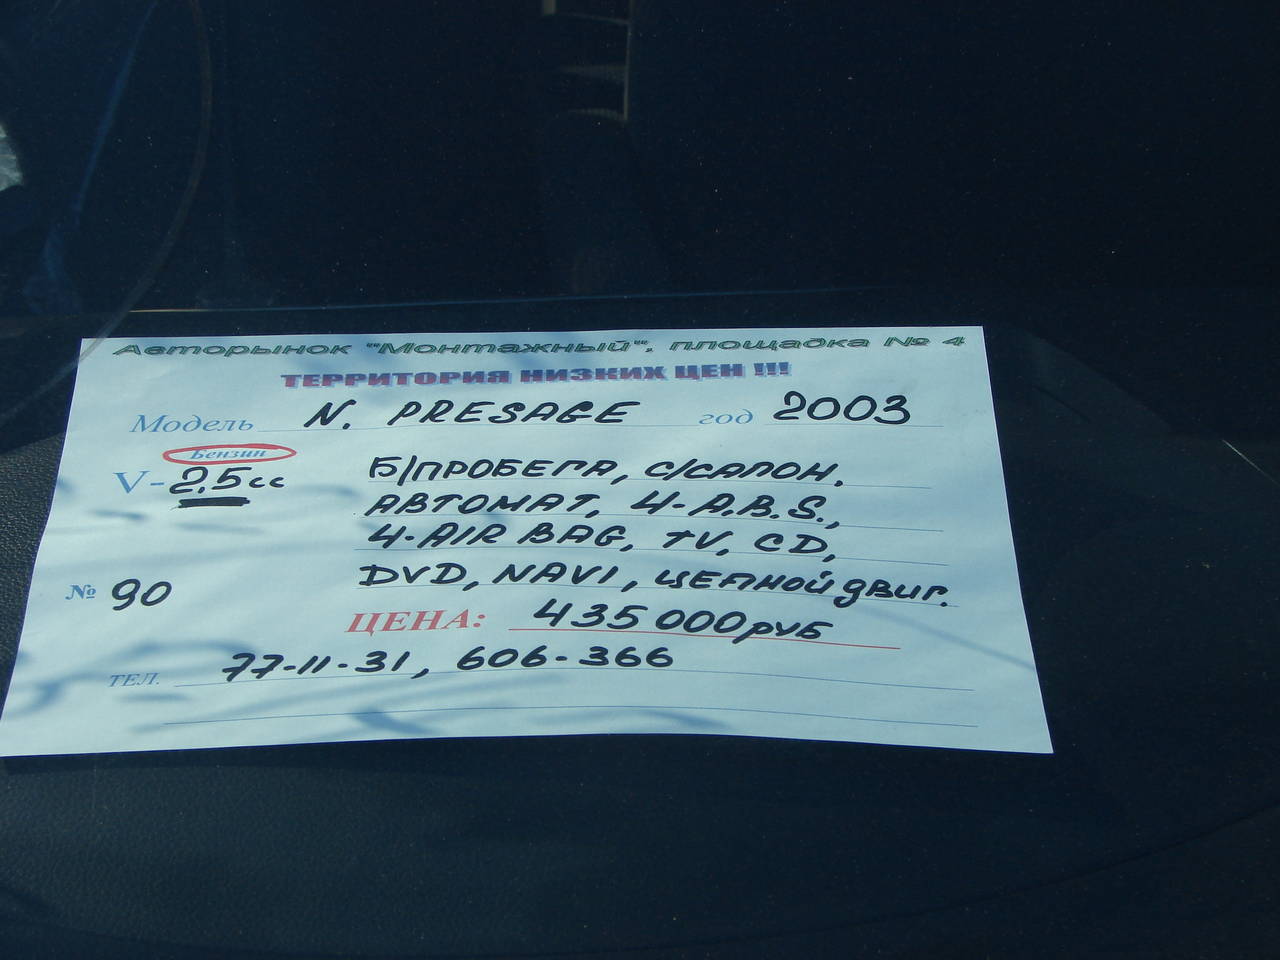 Авторынок "Монтажный", площадка № 4
ТЕРРИТОРИЯ НИЗКИХ ЦЕН !!!
Модель N. PRESAGE год 2003
Бензин
V- 2,5 cc
Б/ПРОБЕГА, С/САЛОН,
АВТОМАТ, 4-A.B.S.,
4-AIR BAG, TV, CD,
DVD, NAVI, ЦЕПНОЙ ДВИГ.
№ 90
ЦЕНА: 435 000 руб
ТЕЛ. 77-11-31, 606-366